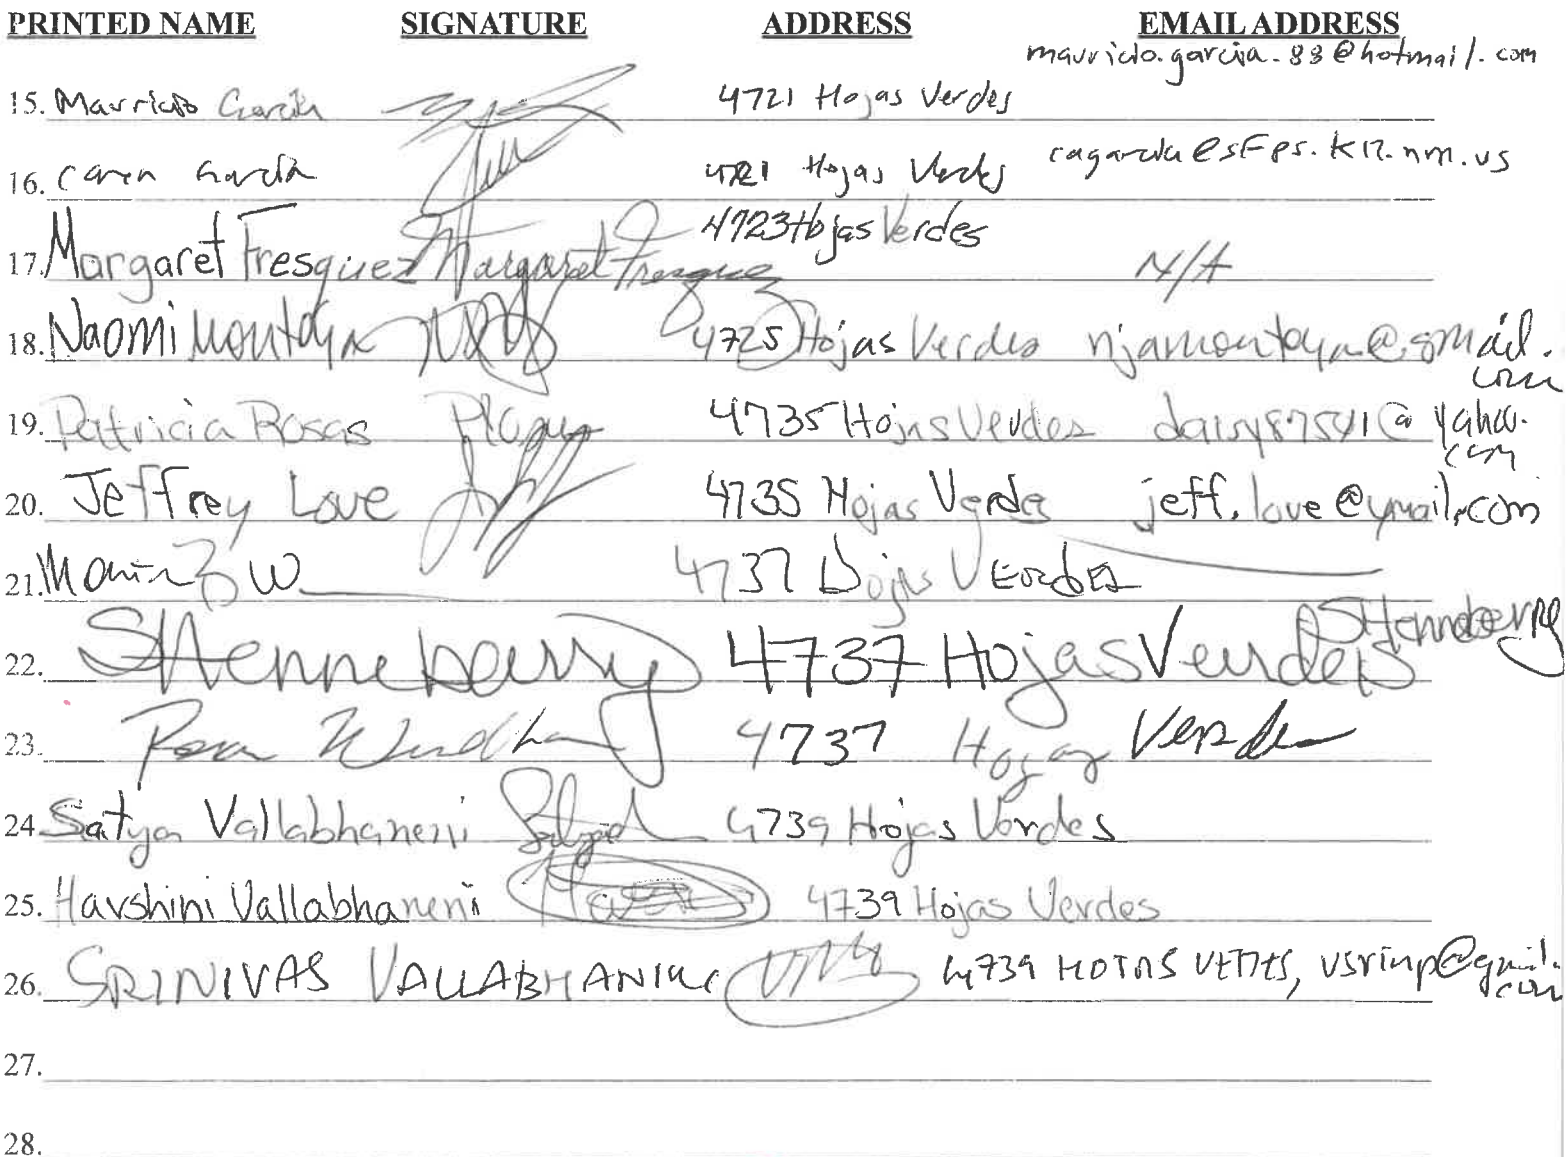 PRINTED NAME SIGNATURE ADDRESS EMAIL ADDRESS
mauricio.garcia.83@hotmail.com
15. Mauricio Garcia 4721 Hojas Verdes
16. Caren Garcia 4721 Hojas Verdes cagarcia@sfps.k12.nm.us
17. Margaret Fresquez Margaret Fresquez 4723 Hojas Verdes N/A
18. Naomi Montoya 4725 Hojas Verdes njamontoya@gmail.
com
19. Patricia Rosas 4735 Hojas Verdes daisy87541@yahoo.
com
20. Jeffrey Love 4735 Hojas Verdes jeff.love@ymail.com
21. 4737 Hojas Verdes
22. SHenneberry 4737 Hojas Verdes SHenneberry
23. 4737 Hojas Verdes
24. Satya Vallabhaneni 4739 Hojas Verdes
25. Harshini Vallabhaneni 4739 Hojas Verdes
26. SRINIVAS VALLABHANENI 4739 HOJAS VERDES, vsrinp@gmail.
com
27.
28.